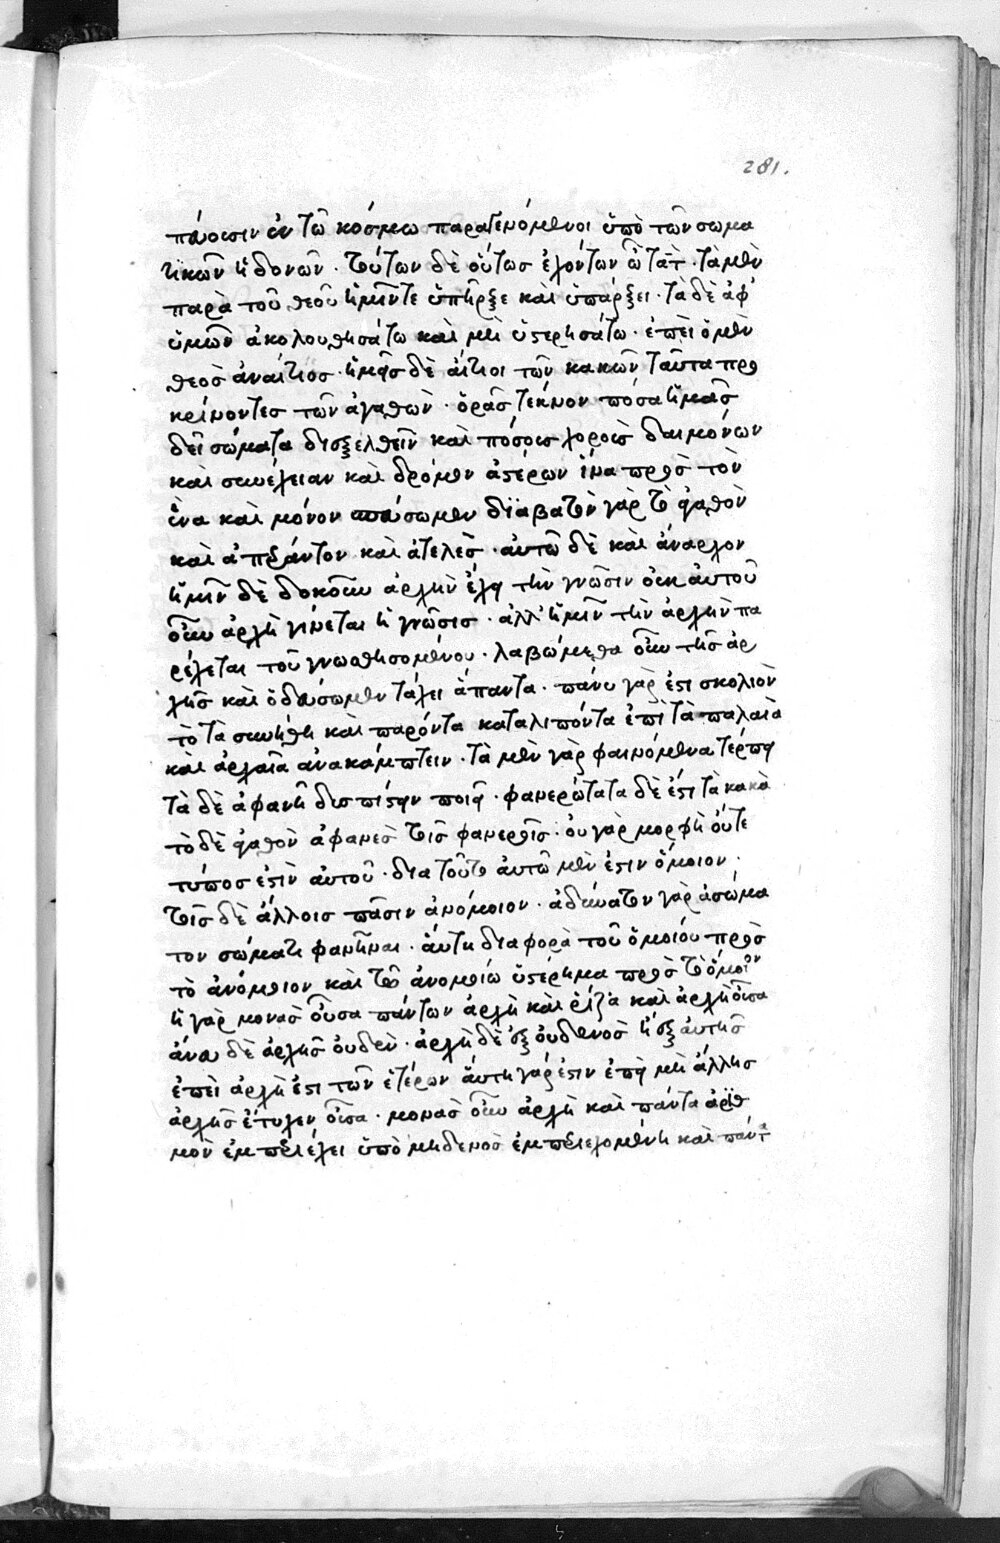 281.
πάουσιν ἐν τῶ κόσμω παραγενόμενοι ὑπὸ τῶν σωμα
τικῶν ἡδονῶν · τούτων δὲ οὕτως ἐχόντων ὦ τάτ · τὰ μὲν
παρὰ τοῦ θεοῦ ἡμῖν τε ὑπῆρξε καὶ ὑπάρξει · τὰ δὲ ἀφ'
ὑμῶν ἀκολουθησάτω καὶ μὴ ὑστερησάτω · ἐπεὶ ὁ μὲν
θεὸς ἀναίτιος · ἡμεῖς δὲ αἴτιοι τῶν κακῶν ταῦτα προ
κρίνοντες τῶν ἀγαθῶν · ὁρᾶς τέκνον πόσα ἡμᾶς
δεῖ σώματα διεξελθεῖν καὶ πόσους χοροὺς δαιμόνων
καὶ συνέχειαν καὶ δρόμων ἀστέρων ἵνα πρὸς τὸν
ἕνα καὶ μόνον σπεύσωμεν διαβατὸν γὰρ τὸ ἀγαθὸν
καὶ ἀπέραντον καὶ ἀτελές · αὐτῶ δὲ καὶ ἄναρχον
ἡμῖν δὲ δοκοῦν ἀρχὴν ἔχειν τὴν γνῶσιν οὐκ αὐτοῦ
οὖν ἀρχὴ γίνεται ἡ γνῶσις · ἀλλ' ἡμῖν τὴν ἀρχὴν πα
ρέχεται τοῦ γνωσθησομένου · λαβώμεθα οὖν τῆς ἀρ
χῆς καὶ ὁδεύσωμεν τάχει ἅπαντα · πάνυ γάρ ἐστι σκολιὸν
τὸ τὰ συνήθη καὶ παρόντα καταλιπόντα ἐπὶ τὰ παλαιὰ
καὶ ἀρχαῖα ἀνακάμπτειν · τὰ μὲν γὰρ φαινόμενα τέρπει
τὰ δὲ ἀφανῆ δυσπιστεῖν ποιεῖ · φανερώτατα δέ ἐστι τὰ κακὰ
τὸ δὲ ἀγαθὸν ἀφανὲς τοῖς φανεροῖς · οὐ γὰρ μορφὴ οὔτε
τύπος ἐστὶν αὐτοῦ · διὰ τοῦτο αὐτῶ μέν ἐστιν ὅμοιον ·
τοῖς δὲ ἄλλοις πᾶσιν ἀνόμοιον · ἀδύνατον γὰρ ἀσώμα
τον σώματι φανῆναι · αὕτη διαφορὰ τοῦ ὁμοίου πρὸς
τὸ ἀνόμοιον καὶ τῶ ἀνομοίω ὑστέρημα πρὸς τὸ ὅμοιον
ἡ γὰρ μονὰς οὖσα πάντων ἀρχὴ καὶ ῥίζα καὶ ἀρχὴ οὖσα
ἄνευ δὲ ἀρχῆς οὐδέν · ἀρχὴ δὲ ἐξ οὐδενὸς ἢ ἐξ αὑτῆς
ἐπεὶ ἀρχή ἐστι τῶν ἑτέρων αὕτη γάρ ἐστιν ἐπεὶ μὴ ἄλλης
ἀρχῆς ἔτυχεν οὖσα · μονὰς οὖν ἀρχὴ καὶ πάντα ἀριθ
μὸν ἐμπεριέχει ὑπὸ μηδενὸς ἐμπεριεχομένη καὶ πάντα